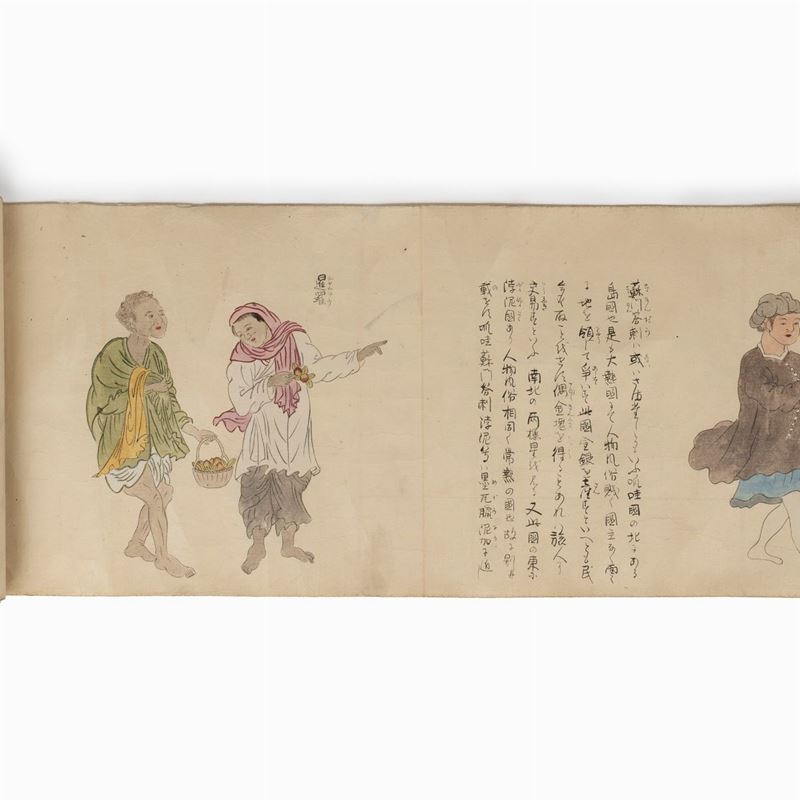 蘇門答剌ハ或いさまたらともいふ爪哇國の北にある
島國也是も大熱國にて人物風俗賎く國主あり
地を領して争 此國金銀を産すといへとも民
偶金塊を得ることあれハ旅人と
交易すといふ南北の両極星を見る又此國の東に
浡泥國あり人物風俗相同し常熱の國也故に別に
載せす爪哇蘇門答剌浡泥等ハ墨瓦臘泥加に近
暹羅